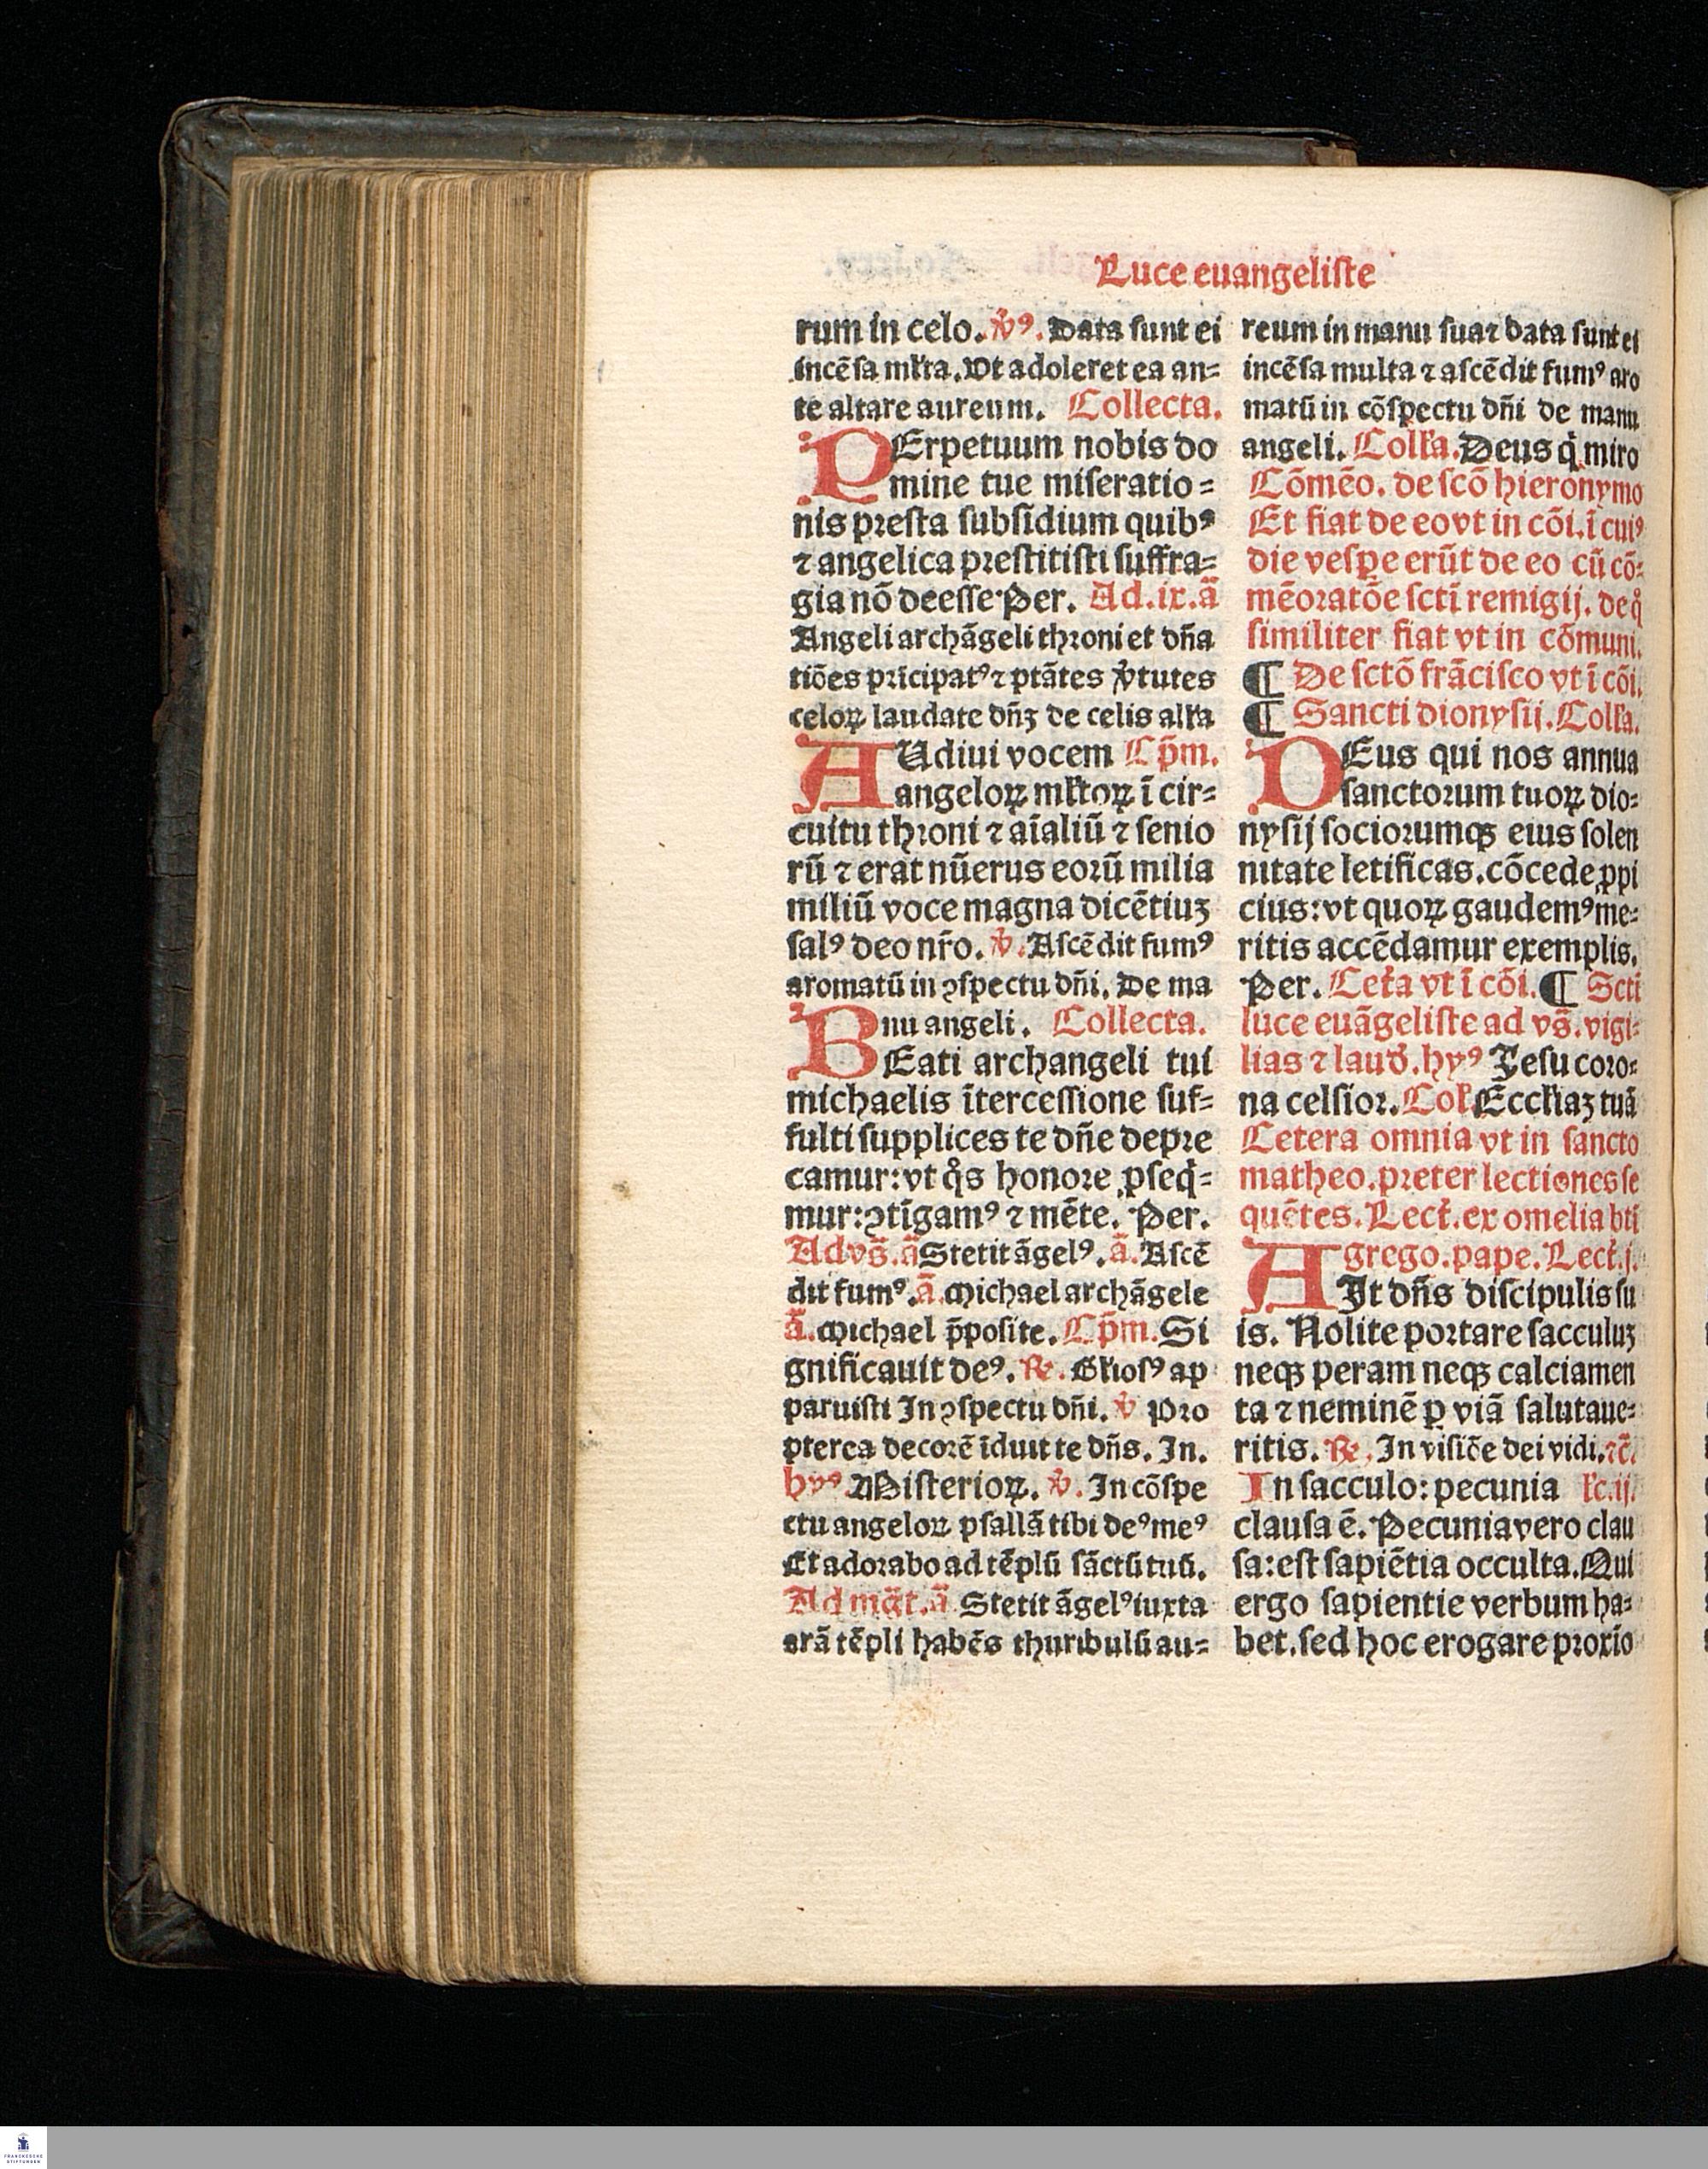 Luce euangeliste
rum in celo. v̾ꝰ. Data sunt ei
incẽsa mĺta. Vt adoleret ea an⸗
te altare aureum. Collecta.
PErpetuum nobis do
mine tue miseratio⸗
nis presta subsidium quibꝰ
⁊ angelica prestitisti suffra⸗
gia nõ deesse. Per. Ad .ix. ā
Angeli archãgeli throni et dña
tiões prĩcipatꝰ ⁊ ptãtes v̾tutes
celoꝝ laudate dñꝫ de celis alĺa
AUdiui vocem Cp̃m.
angeloꝝ mĺtoꝝ ĩ cir⸗
cuitu throni ⁊ aĩaliũ ⁊ senio
rũ ⁊ erat nũerus eorũ milia
miliũ voce magna dicẽtiuꝫ
salꝰ deo nr̃o. v̾. Ascẽdit fumꝰ
aromatũ in ꝯspectu dñi. De ma
nu angeli. Collecta.
BEati archangeli tui
michaelis ĩtercessione suf⸗
fulti supplices te dñe depre
camur: vt qͦs honore ꝓseq̃⸗
mur: ꝯtĩgamꝰ ⁊ mẽte. Per.
Ad vs̃. ā Stetit ãgelꝰ. ā. Ascẽ
dit fumꝰ. ā. Michael archãgele
ā. Michael p̃posite. Cp̃m. Si
gnificauit deꝰ. ℞. Gĺiosꝰ ap
paruisti In ꝯspectu dñi. v̾ Pro
pterea decorẽ ĩduit te dñs. In.
hyꝰ Misterioꝝ. v̾. In cõspe
ctu angeloꝝ psallã tibi deꝰ meꝰ
Et adorabo ad tẽplũ sãctũ tuũ.
Ad mg̃t. ā Stetit ãgelꝰ iuxta
arã tẽpli habẽs thuribulũ au⸗
reum in manu sua ⁊ data sunt ei
incẽsa multa ⁊ ascẽdit fumꝰ aro
matũ in cõspectu dñi de manu
angeli. Colĺa. Deus q̇ miro
Cõmẽo. de scõ hieronymo
Et fiat de eo vt in cõi. ĩ cuiꝰ
die vespe erũt de eo cũ cõ⸗
mẽoratõe sctĩ remigij. de qͦ
similiter fiat vt in cõmuni.
¶ De sctõ frãcisco vt ĩ cõi.
¶ Sancti dionysij. Colĺa.
DEus qui nos annua
sanctorum tuoꝝ dio⸗
nysij sociorumqꝫ eius solen
nitate letificas. cõcede ꝓpi
cius: vt quoꝝ gaudemꝰ me⸗
ritis accẽdamur exemplis.
Per. Cet̃a vt ĩ cõi. ¶ Scti
luce euãgeliste ad vs̃. vigi⸗
lias ⁊ laud̾. hyꝰ Jesu coro⸗
na celsior. Col̃. Eccĺiaꝫ tuã
Cetera omnia vt in sancto
matheo. preter lectiones se
quẽtes. Lect̃. ex omelia bti
grego. pape. Lect̃. j.
AIt dñs discipulis su
is. Nolite portare sacculuꝫ
neqꝫ peram neqꝫ calciamen
ta ⁊ neminẽ ꝑ viã salutaue⸗
ritis. ℞. In visiõe dei vidi. ⁊c̃.
In sacculo: pecunia ĺc. ij.
clausa ẽ. Pecunia vero clau
sa: est sapiẽtia occulta. Qui
ergo sapientie verbum ha⸗
bet. sed hoc erogare proxio
FRANCKESCHE
STIFTUNGEN